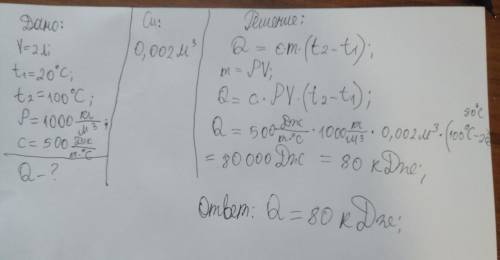 Дано:
V=2л;
t₁=20°C;
t₂=100°C;
ρ=1000 кг/м³;
c=500 Дж/m·°C
Q-?
Си:
0,002м³
Решение:
Q = cm·(t₂-t₁);
m = ρV;
Q=c·ρV·(t₂-t₁);
Q=500 Дж/m·°C · 1000 кг/м³ · 0,002м³ · (100°C-20
80°C
= 80 000 Дж = 80 кДж;
Ответ: Q=80 кДж;